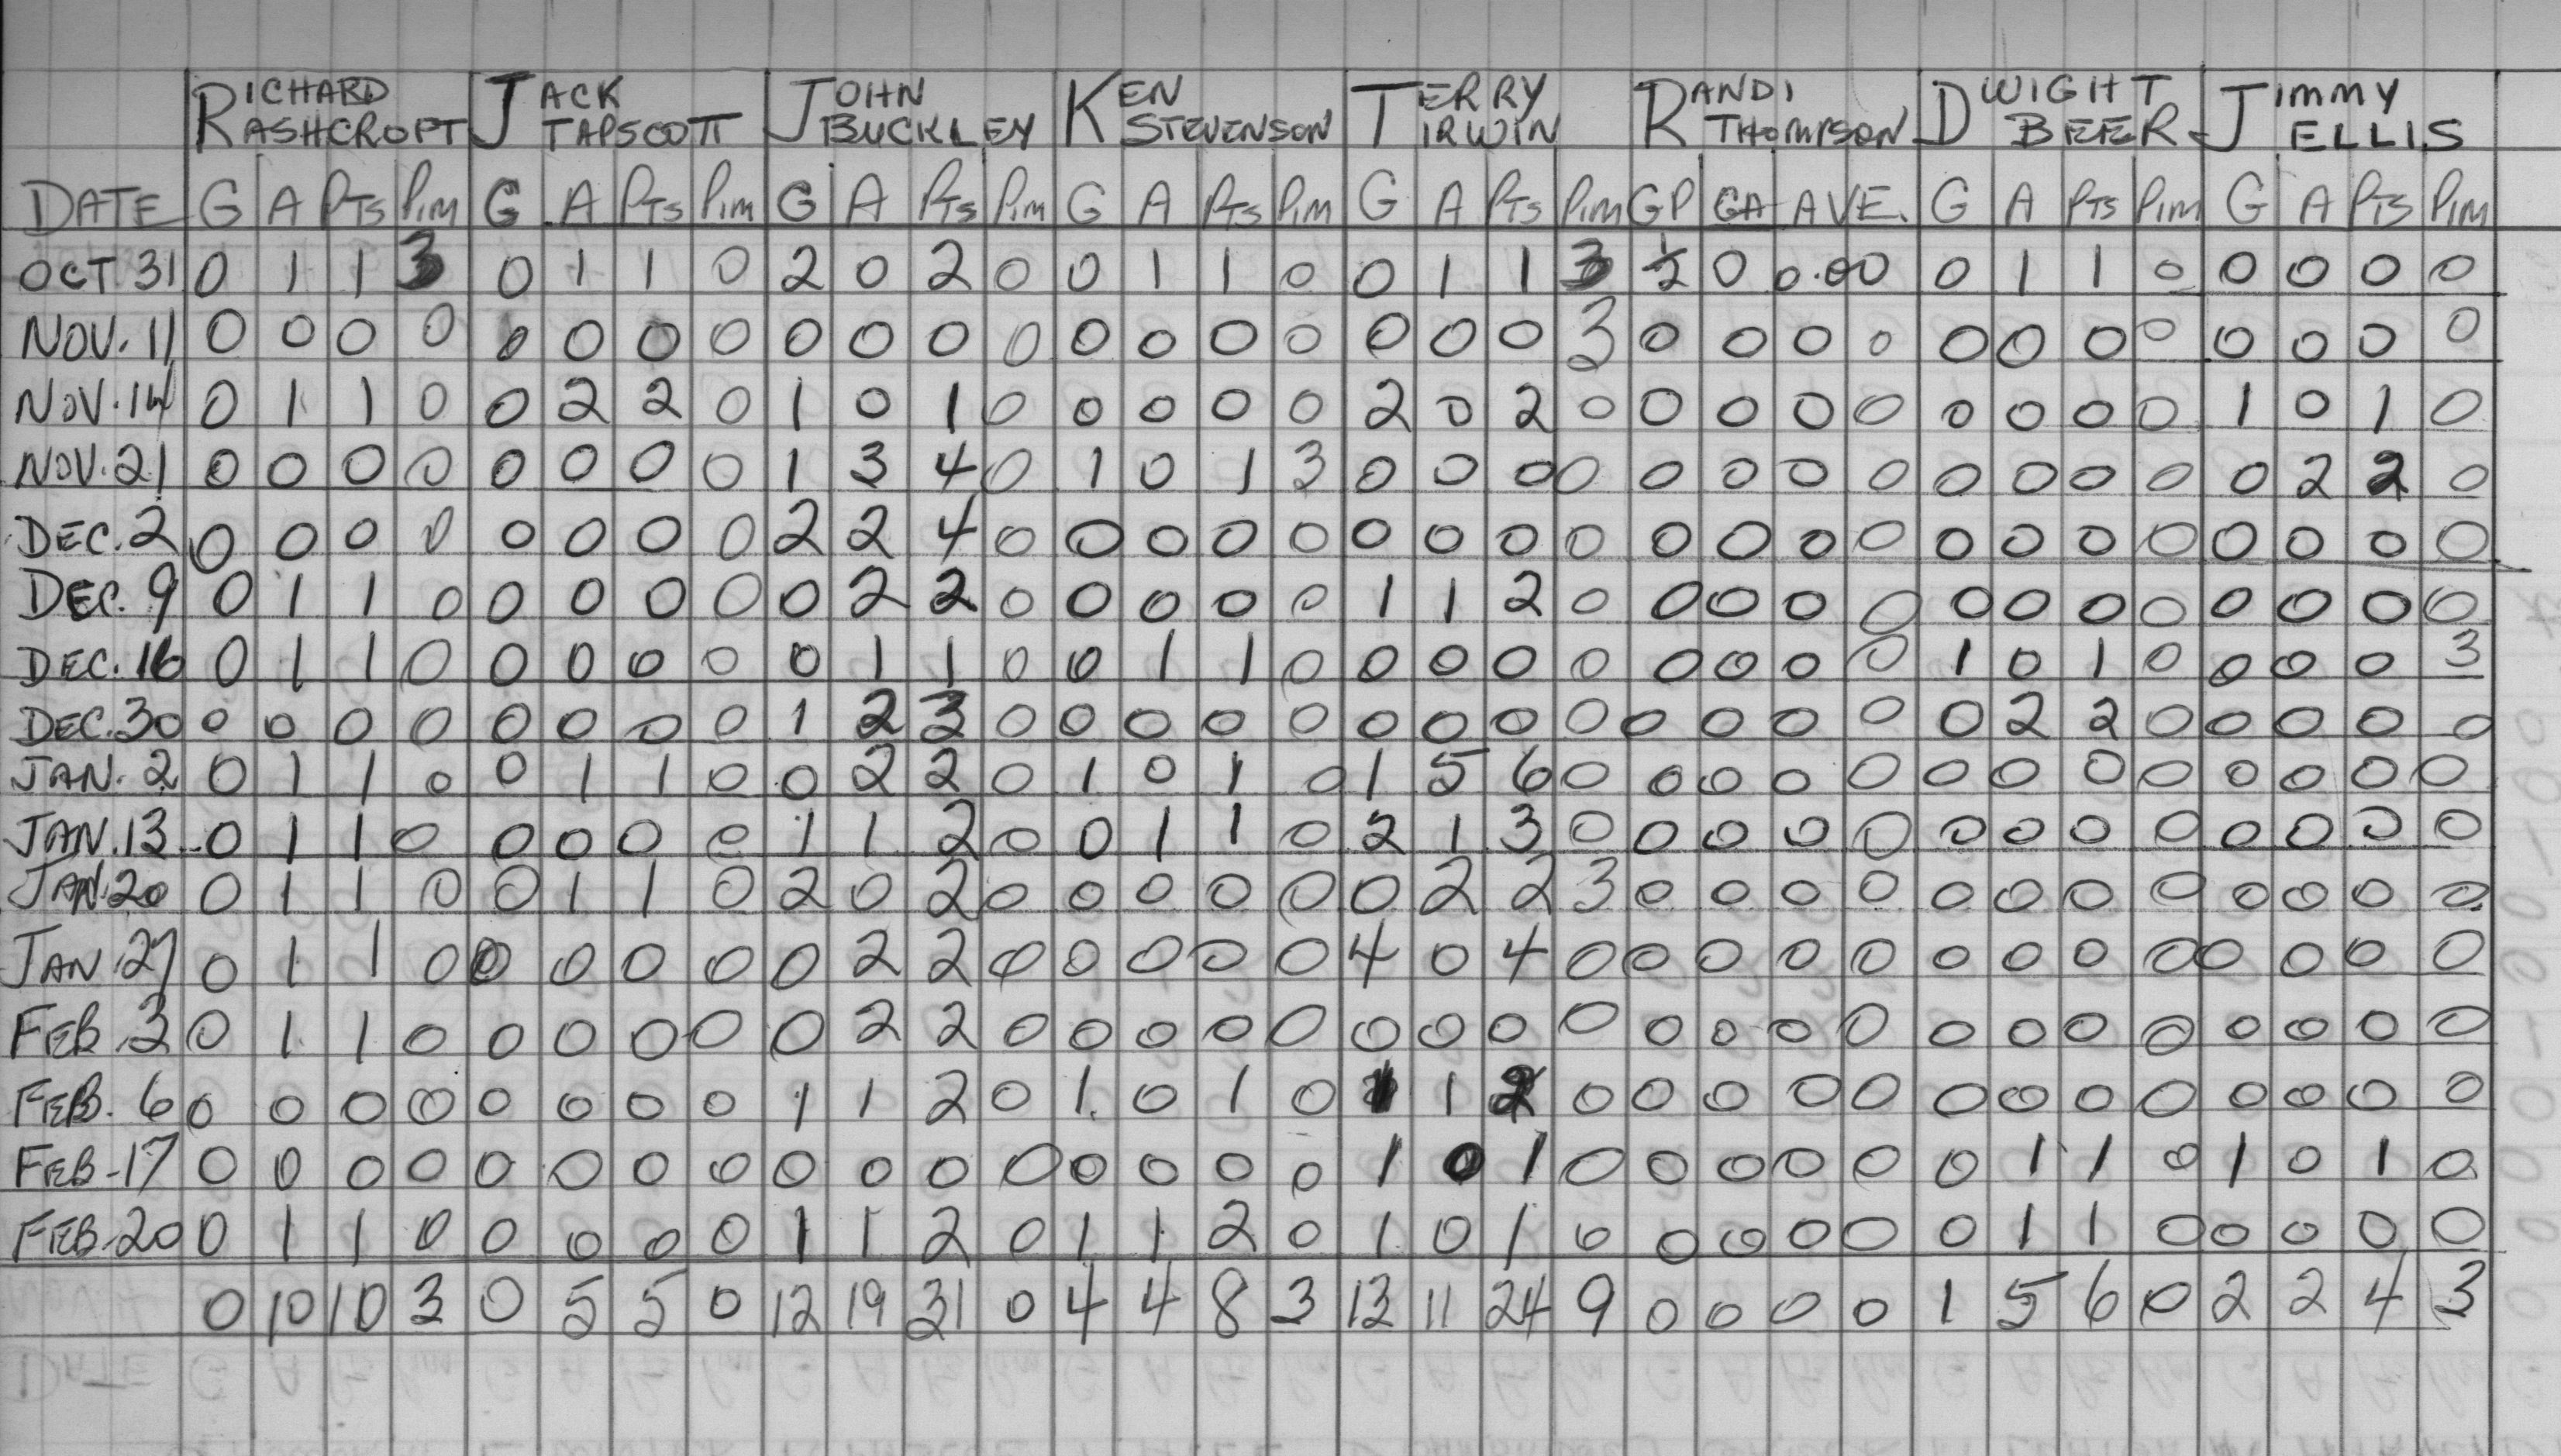 RICHARD ASHCROFT JACK TAPSCOTT JOHN BUCKLEY KEN STEVENSON TERRY IRWIN RANDI THOMPSON DWIGHT BEER JIMMY ELLIS
DATE G A PTS PIM G A PTS PIM G A PTS PIM G A PTS PIM G A PTS PIM GP GA AVE. G A PTS PIM G A PTS PIM
OCT 31 0 1 1 3 0 1 1 0 2 0 2 0 0 1 1 0 0 1 1 3 1/2 0 0.00 0 1 1 0 0 0 0 0
NOV. 11 0 0 0 0 0 0 0 0 0 0 0 0 0 0 0 0 0 0 0 3 0 0 0 0 0 0 0 0 0 0 0 0
NOV. 14 0 1 1 0 0 2 2 0 1 0 1 0 0 0 0 0 2 0 2 0 0 0 0 0 0 0 0 0 1 0 1 0
NOV. 21 0 0 0 0 0 0 0 0 1 3 4 0 1 0 1 3 0 0 0 0 0 0 0 0 0 0 0 0 0 2 2 0
DEC. 2 0 0 0 0 0 0 0 0 2 2 4 0 0 0 0 0 0 0 0 0 0 0 0 0 0 0 0 0 0 0 0 0
DEC. 9 0 1 1 0 0 0 0 0 0 2 2 0 0 0 0 0 1 1 2 0 0 0 0 0 0 0 0 0 0 0 0 0
DEC. 16 0 1 1 0 0 0 0 0 0 1 1 0 0 1 1 0 0 0 0 0 0 0 0 0 1 0 1 0 0 0 0 3
DEC. 30 0 0 0 0 0 0 0 0 1 2 3 0 0 0 0 0 0 0 0 0 0 0 0 0 0 2 2 0 0 0 0 0
JAN. 2 0 1 1 0 0 1 1 0 0 2 2 0 1 0 1 0 1 5 6 0 0 0 0 0 0 0 0 0 0 0 0 0
JAN. 13 0 1 1 0 0 0 0 0 1 1 2 0 0 1 1 0 2 1 3 0 0 0 0 0 0 0 0 0 0 0 0 0
JAN. 20 0 1 1 0 0 1 1 0 2 0 2 0 0 0 0 0 0 2 2 3 0 0 0 0 0 0 0 0 0 0 0 0
JAN. 27 0 1 1 0 0 0 0 0 0 2 2 0 0 0 0 0 4 0 4 0 0 0 0 0 0 0 0 0 0 0 0 0
FEB. 3 0 1 1 0 0 0 0 0 0 2 2 0 0 0 0 0 0 0 0 0 0 0 0 0 0 0 0 0 0 0 0 0
FEB. 6 0 0 0 0 0 0 0 0 1 1 2 0 1 0 1 0 1 1 2 0 0 0 0 0 0 0 0 0 0 0 0 0
FEB-17 0 0 0 0 0 0 0 0 0 0 0 0 0 0 0 0 1 0 1 0 0 0 0 0 0 1 1 0 1 0 1 0
FEB-20 0 1 1 0 0 0 0 0 1 1 2 0 1 1 2 0 1 0 1 0 0 0 0 0 0 1 1 0 0 0 0 0
0 10 10 3 0 5 5 0 12 19 31 0 4 4 8 3 13 11 24 9 0 0 0 0 1 5 6 0 2 2 4 3